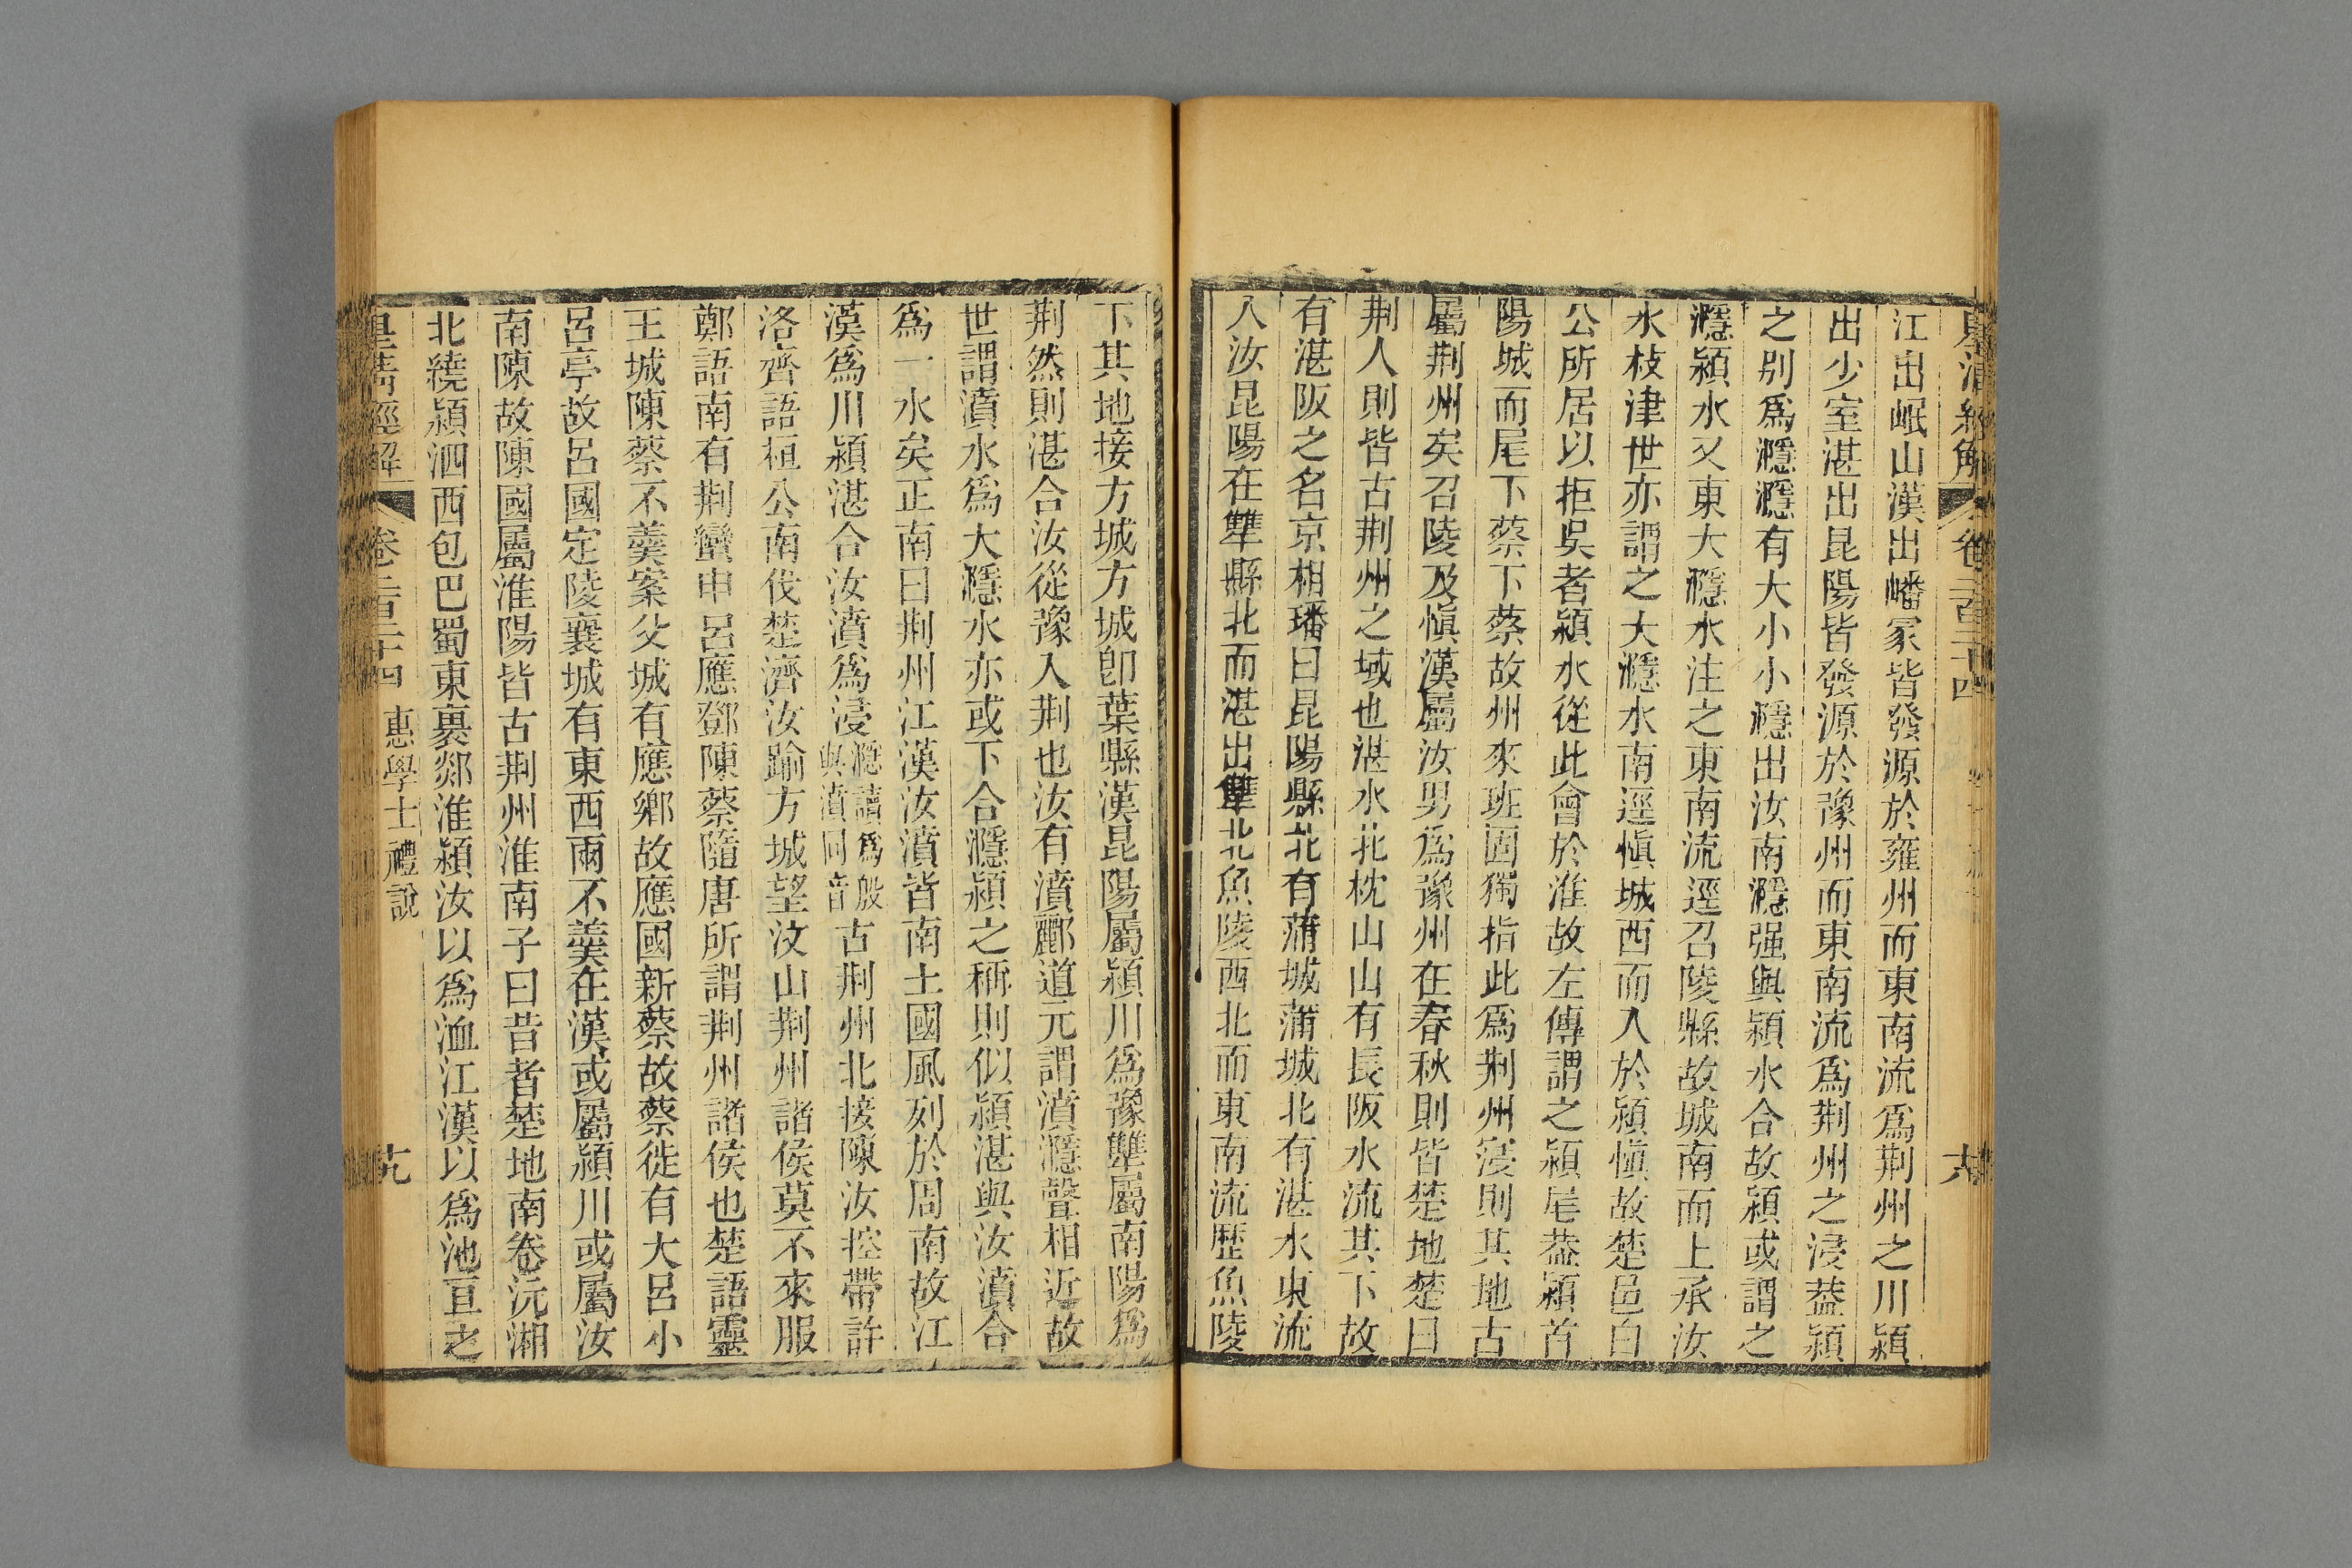 皇清經解 卷二百二十四 大
江出岷山漢出嶓冢皆發源於雍州而東南流爲荆州之川潁
出少室湛出昆陽皆發源於豫州而東南流爲荆州之浸葢潁
之别爲濦濦有大小小濦出汝南濦强與潁水合故潁或謂之
濦潁水又東大濦水注之東南流逕召陵縣故城南而上承汝
水枝津世亦謂之大濦水南逕愼城西而入於潁愼故楚邑白
公所居以拒吳者潁水從此會於淮故左傳謂之潁尾葢潁首
陽城而尾下蔡下蔡故州來班固獨指此爲荆州寖則其地古
屬荆州矣召陵及愼漢屬汝男爲豫州在春秋則皆楚地楚曰
荆人則皆古荆州之域也湛水北枕山山有長阪水流其下故
有湛阪之名京相璠曰昆陽縣北有蒲城蒲城北有湛水東流
入汝昆陽在犨縣北而湛出犨北魚陵西北而東南流歷魚陵
下其地接方城方城卽葉縣漢昆陽屬潁川爲豫犨屬南陽爲
荆然則湛合汝從豫入荆也汝有濆酈道元謂濆濦聲相近故
世謂濆水爲大濦水亦或下合濦潁之稱則似潁湛與汝濆合
爲一水矣正南曰荆州江漢汝濆皆南土國風列於周南故江
漢爲川潁湛合汝濆爲浸濦讀爲殷與濆同音古荆州北接陳汝控帶許
洛齊語桓公南伐楚濟汝踰方城望汶山荆州諸侯莫不來服
鄭語南有荆蠻申呂應鄧陳蔡隨唐所謂荆州諸侯也楚語靈
王城陳蔡不羹案父城有應鄉故應國新蔡故蔡徙有大呂小
呂亭故呂國定陵襄城有東西兩不羹在漢或屬潁川或屬汝
南陳故陳國屬淮陽皆古荆州淮南子曰昔者楚地南卷沅湘
北繞潁泗西包巴蜀東裹郯淮潁汝以爲洫江漢以爲池亘之
皇清經解 卷二百二十四 惠學士禮說 十九